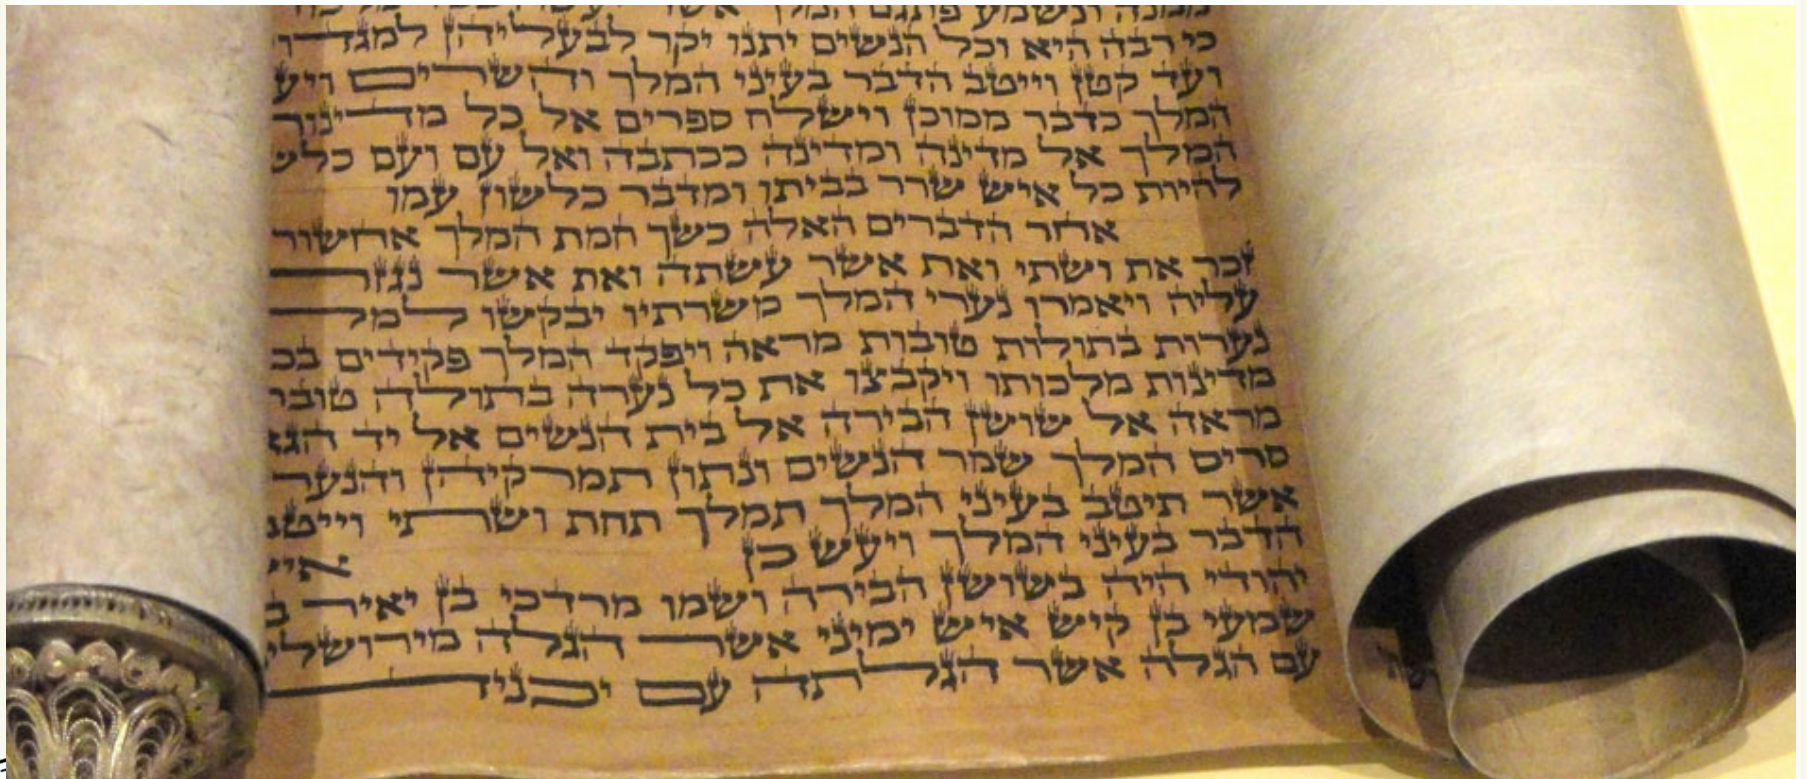 ממנה ונשמע פתגם המלך אשר
כי רבה היא וכל הנשים יתנו יקר לבעליהן
ועד קטן וייטב הדבר בעיני המלך והשרים
המלך כדבר ממוכן וישלח ספרים אל כל
המלך אל מדינה ומדינה ככתבה ואל עם ועם
להיות כל איש שרר בביתו ומדבר כלשון עמו
אחר הדברים האלה כשך חמת המלך
זכר את ושתי ואת אשר עשתה ואת אשר
עליה ויאמרו נערי המלך משרתיו יבקשו
נערות בתולות טובות מראה ויפקד המלך פקידים
מדינות מלכותו ויקבצו את כל נערה בתולה
מראה אל שושן הבירה אל בית הנשים אל יד
סריס המלך שמר הנשים ונתון תמרקיהן
אשר תיטב בעיני המלך תמלך תחת ושתי
הדבר בעיני המלך ויעש כן
יהודי היה בשושן הבירה ושמו מרדכי בן יאיר
שמעי בן קיש איש ימיני אשר הגלה
עם הגלה אשר הגלתה עם